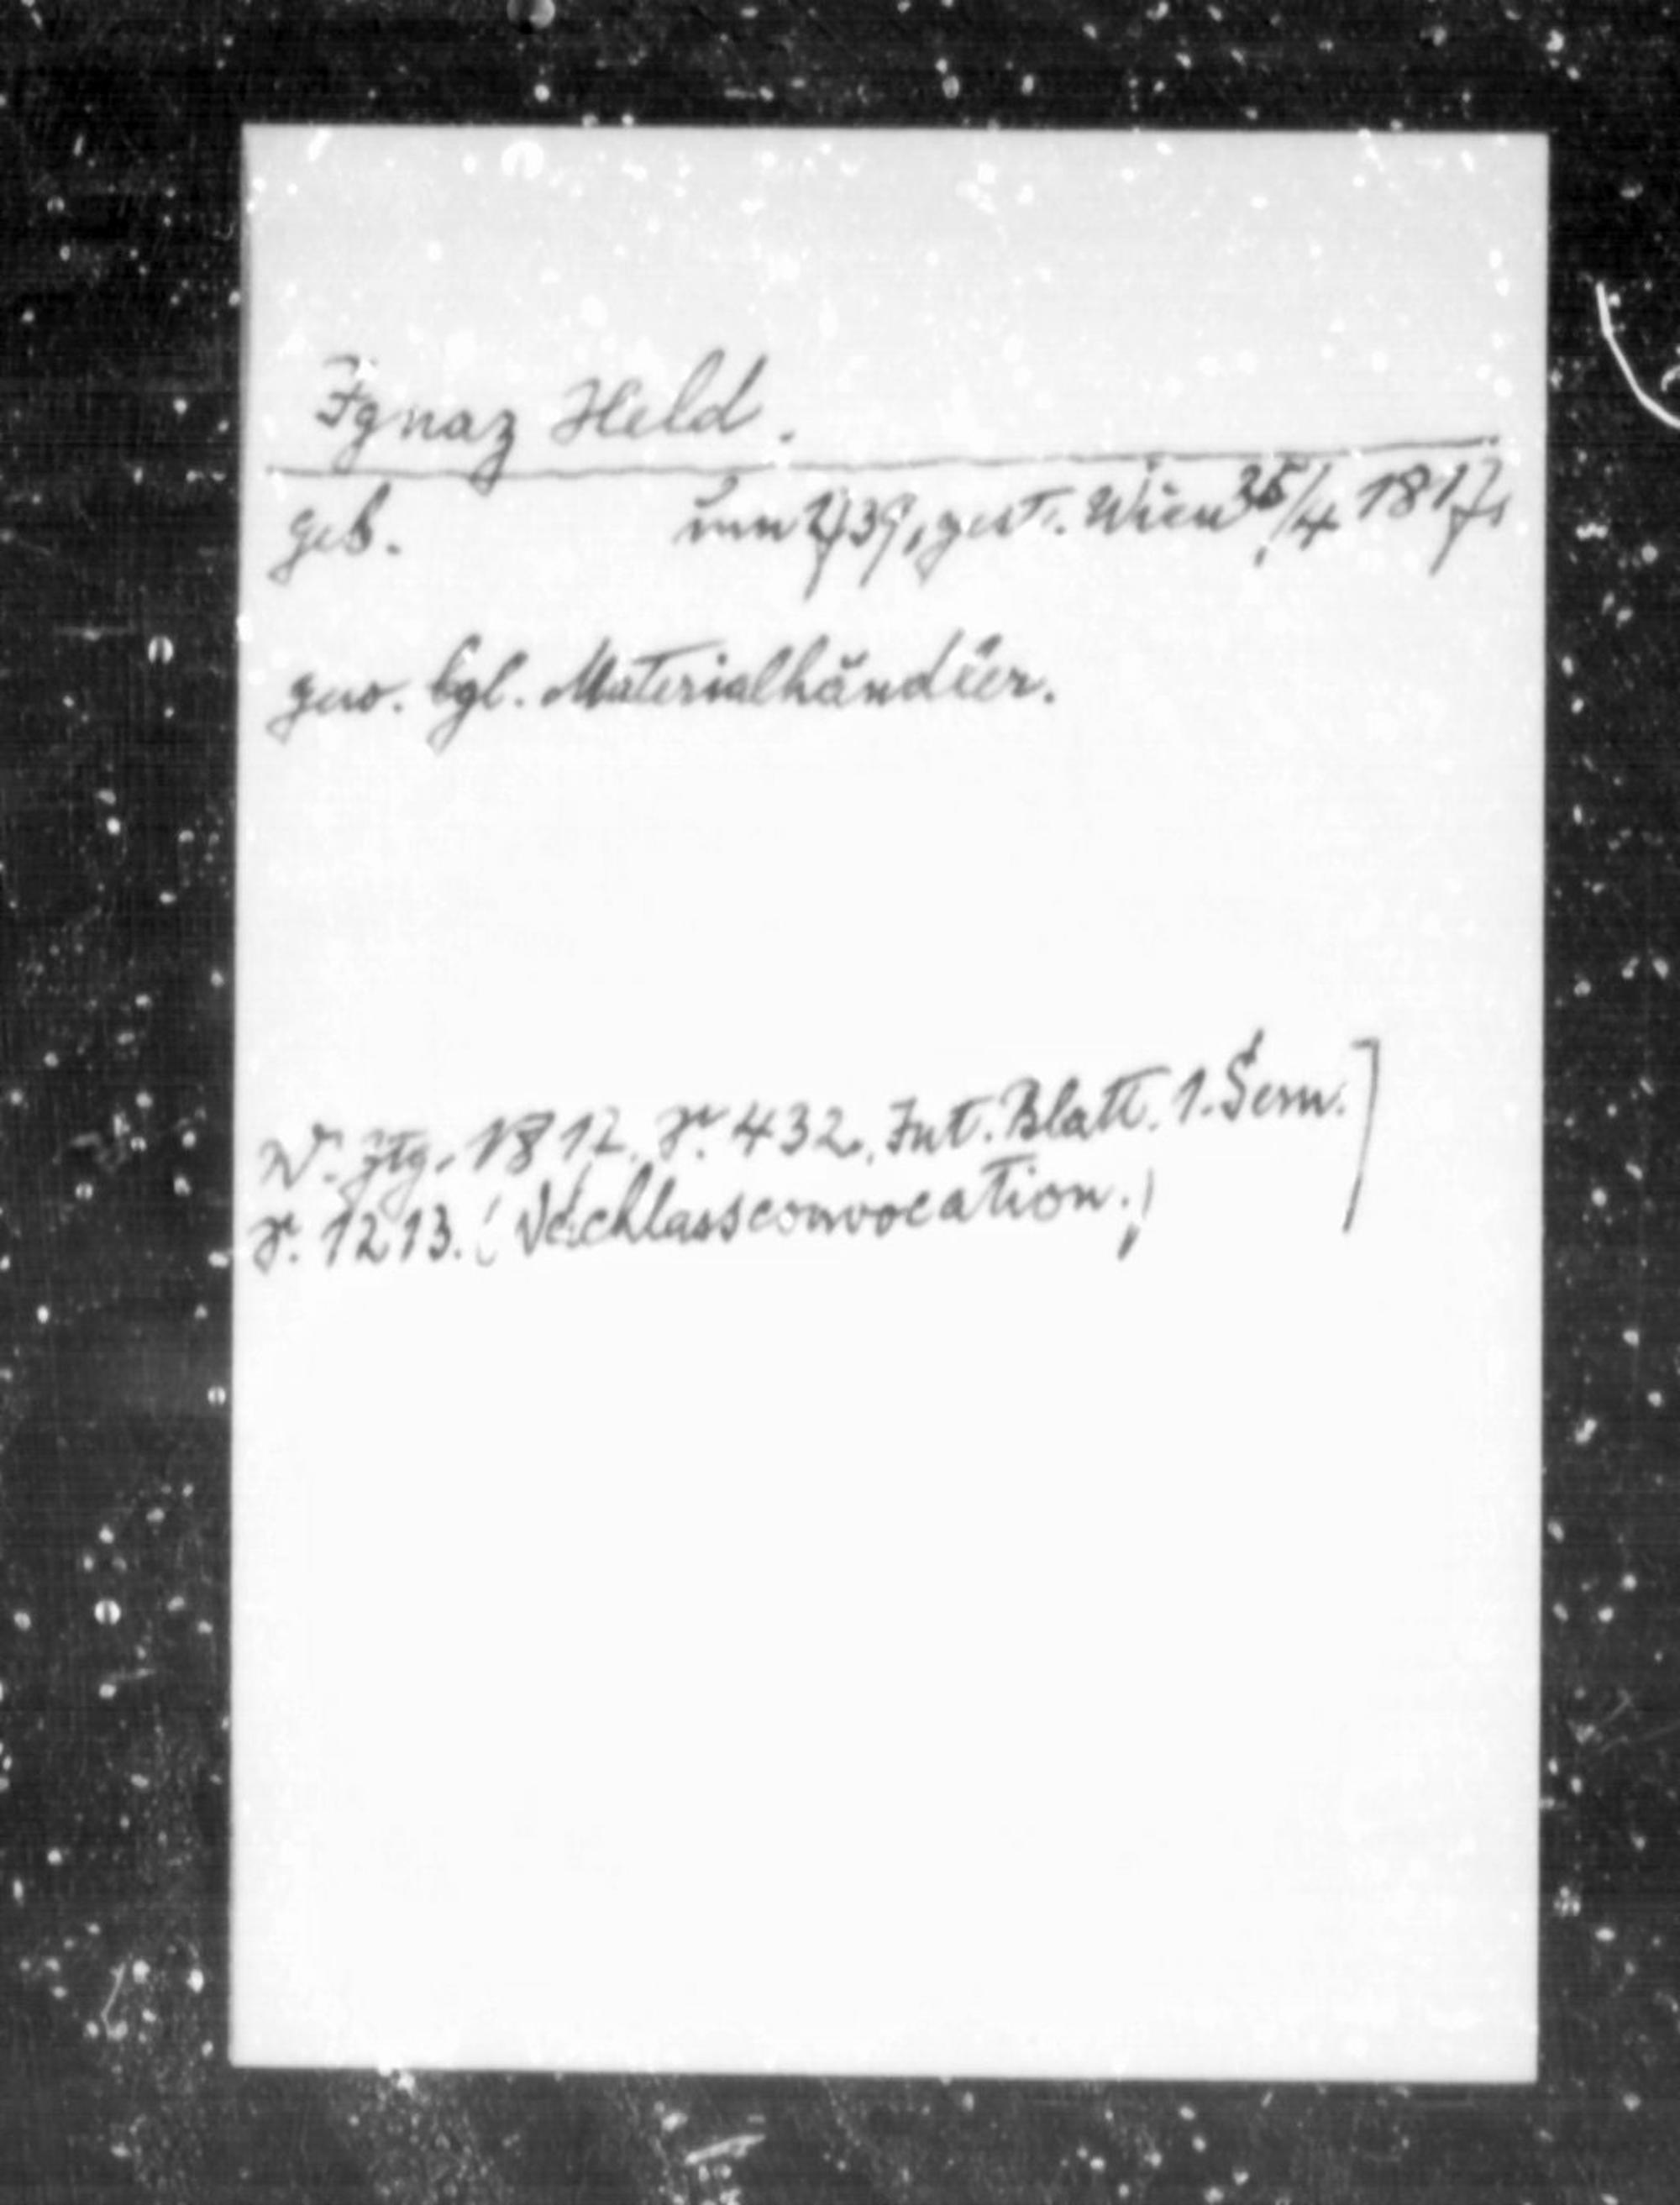 Ignaz Held.
geb. um 1739, gest. Wien /4 1817,
gew. bgl. Materialhändler.
W. Ztg. 1812, S. 432, Int. Blatt. 1. Sem.]
S. 1213. (Nachlassconvocation.)